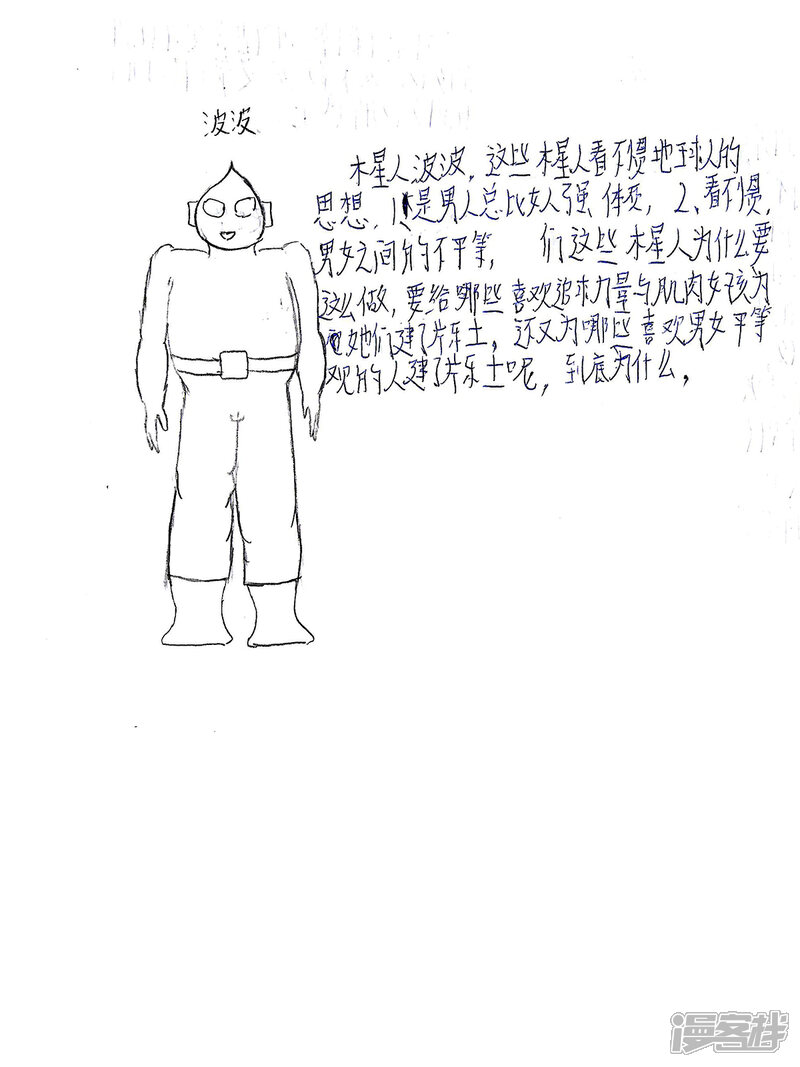 波波
木星人波波，这些木星人看不惯地球人的
思想，1、是男人总比女人强体质，2、看不惯，
男女之间的不平等， 们这些木星人为什么要
这么做，要给哪些喜欢追求力量与肌肉女孩为
她们建了片乐土，还又为哪些喜欢男女平等
观的人建了片乐土呢，到底为什么，
漫客栈